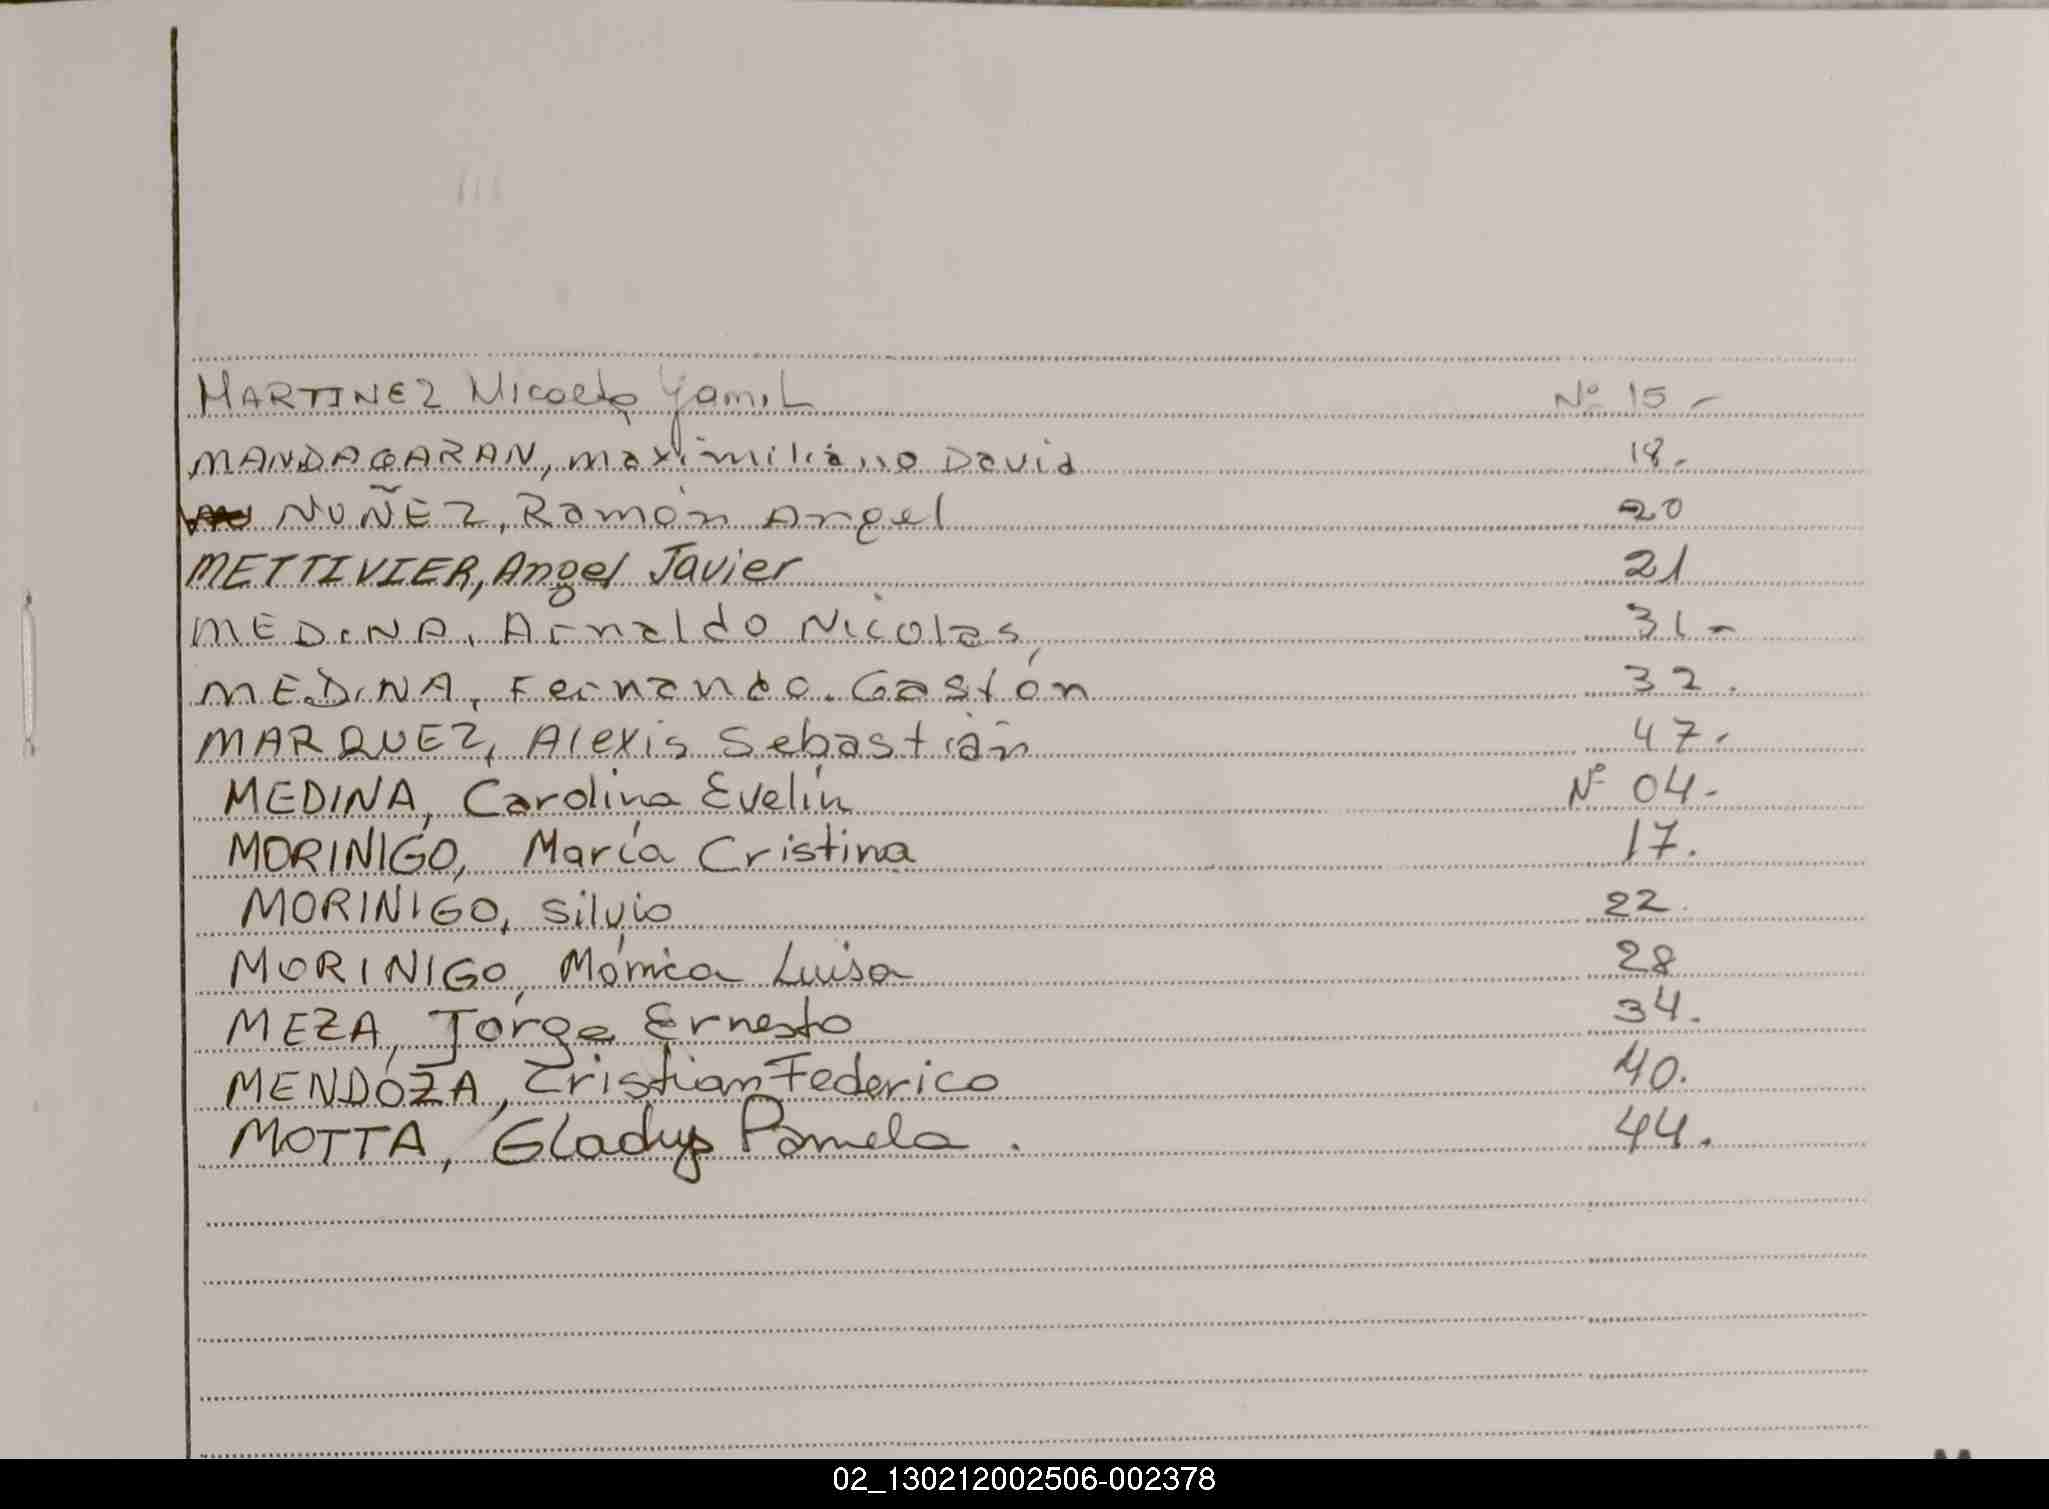 MARTINEZ Yamil Nº 15 -
MANDAGARAN, Maximiliano David 18.
NUÑEZ, Ramón Angel 20
METTIVIER, Angel Javier 21
MEDINA, Arnaldo Nicolas, 31 -
MEDINA, Fernando Gastón 32.
MARQUEZ, Alexis Sebastián 47.
MEDINA, Carolina Evelin Nº 04-
MORINIGO, María Cristina 17.
MORINIGO, Silvio 22.
MORINIGO, Mónica Luisa 28
MEZA, Jorge Ernesto 34.
MENDOZA, Cristian Federico 40.
MOTTA, Gladys Pamela. 44.
02_130212002506-002378